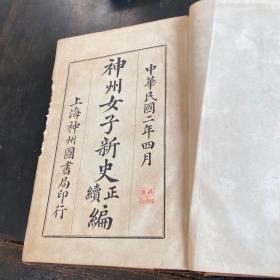 中華民國二年四月
神州女子新史正續編
上海神州圖書局印行